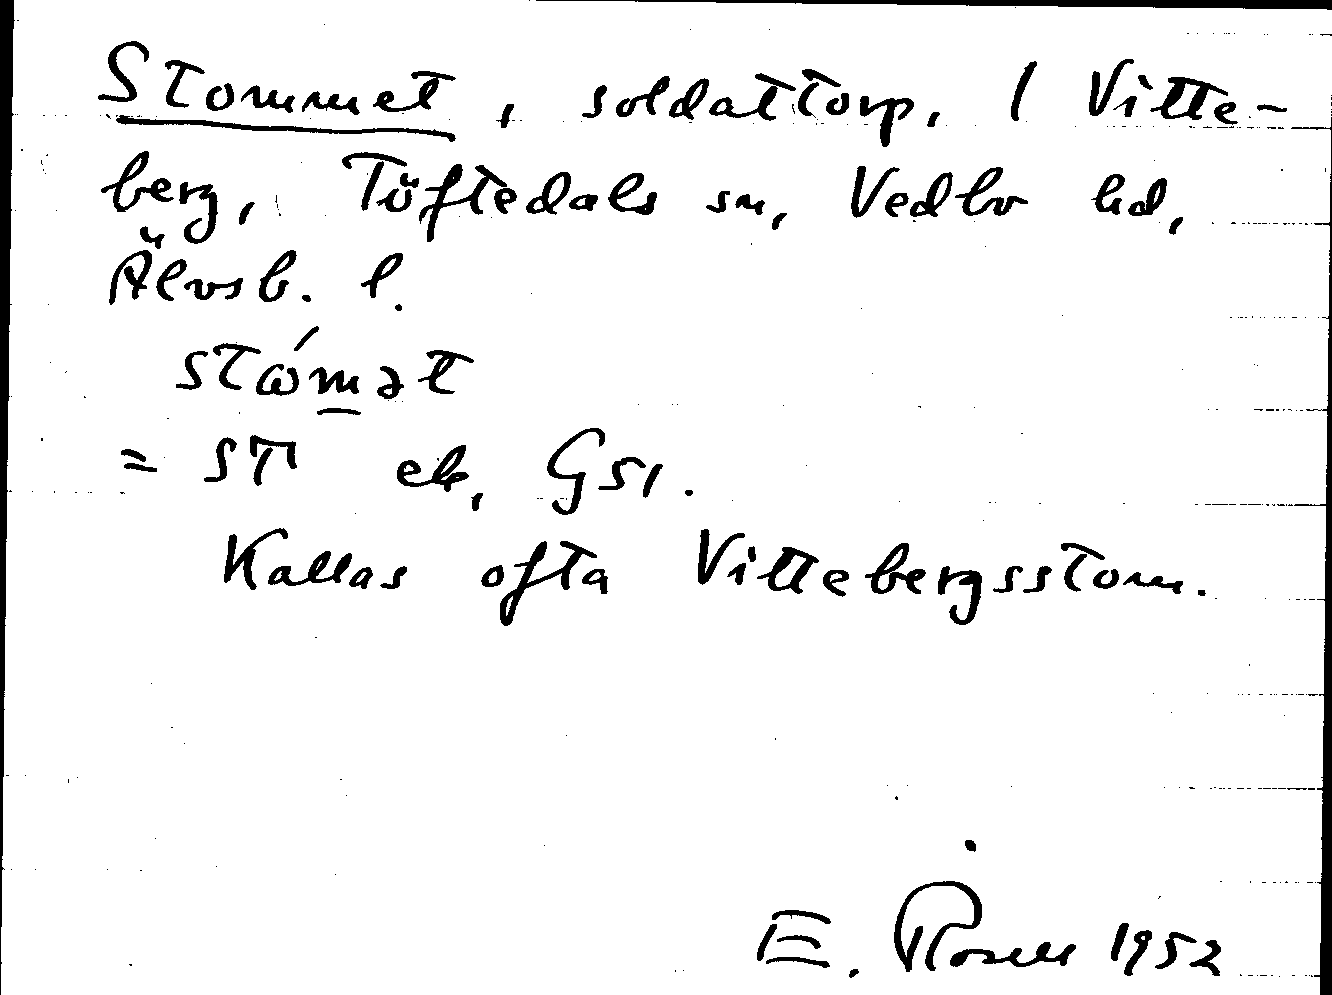 Stommet, soldattorp, 1 Vitte-
berg, Töftedals sn, Vedbo hd,
Älvsb. l.
stɷ́m̲ət
= ST ek, G51.
Kallas ofta Vittebergsstom.
E. Rosell 1952